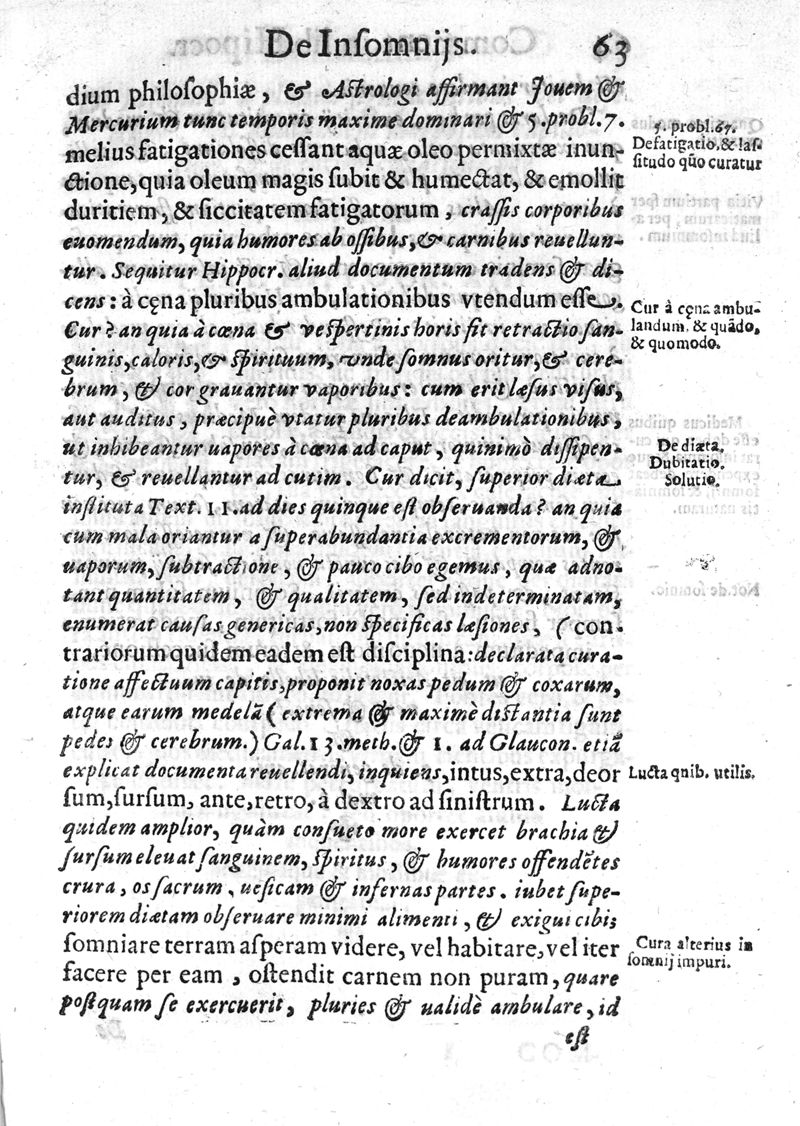 De Inſomnijs. 63
dium philoſophiæ, & Aſtrologi affirmant Jouem &
Mercurium tunc temporis maxime dominari & 5.probl.7.
5. probl.67.
melius fatigationes ceſſant aquæ oleo permixtæ inun-
Defatigatio.& laſ-
ſitudo quo curatur
ctione, quia oleum magis ſubit & humectat, & emollit
duritiem, & ſiccitatem fatigatorum, craſſis corporibus
euomendum, quia humores ab oſſibus, & carnibus reuellun-
tur. Sequitur Hippocr. aliud documentum tradens & di-
cens: à cęna pluribus ambulationibus vtendum eſſe.
Cur à cęna ambu-
landum, & quãdo,
& quomodo.
Cur? an quia à cœna & veſpertinis horis fit retractio ſan-
guinis, caloris, & ſpirituum, vnde ſomnus oritur, & cere-
brum, & cor grauantur vaporibus: cum erit læſus viſus,
aut auditus, præcipuè vtatur pluribus deambulationibus,
ut inhibeantur uapores à cœna ad caput, quinimò diſſipen-
De diæta.
Dubitatio.
Solutio.
tur, & reuellantur ad cutim. Cur dicit, ſuperior diæta
inſtituta Text. 11. ad dies quinque eſt obſeruanda? an quia
cum mala oriantur a ſuperabundantia excrementorum, &
uaporum, ſubtractione, & pauco cibo egemus, quæ adno-
tant quantitatem, & qualitatem, ſed indeterminatam,
enumerat cauſas genericas, non ſpecificas læſiones, (con-
trariorum quidem eadem eſt diſciplina: declarata cura-
tione affectuum capitis, proponit noxas pedum & coxarum,
atque earum medelã (extrema & maximè diſtantia ſunt
pedes & cerebrum.) Gal. 13. meth. & 1. ad Glaucon. etiã
explicat documenta reuellendi, inquiens, intus, extra, deor
Lucta quib. utilis.
ſum, ſurſum, ante, retro, à dextro ad ſiniſtrum. Lucta
quidem amplior, quàm conſueto more exercet brachia &
ſurſum eleuat ſanguinem, ſpiritus, & humores offendẽtes
crura, os ſacrum, ueſicam & infernas partes. iubet ſupe-
riorem diætam obſeruare minimi alimenti, & exigui cibi;
ſomniare terram aſperam videre, vel habitare, vel iter
Cura alterius in
ſomnij impuri.
facere per eam, oſtendit carnem non puram, quare
poſtquam ſe exercuerit, pluries & ualidè ambulare, id
eſt